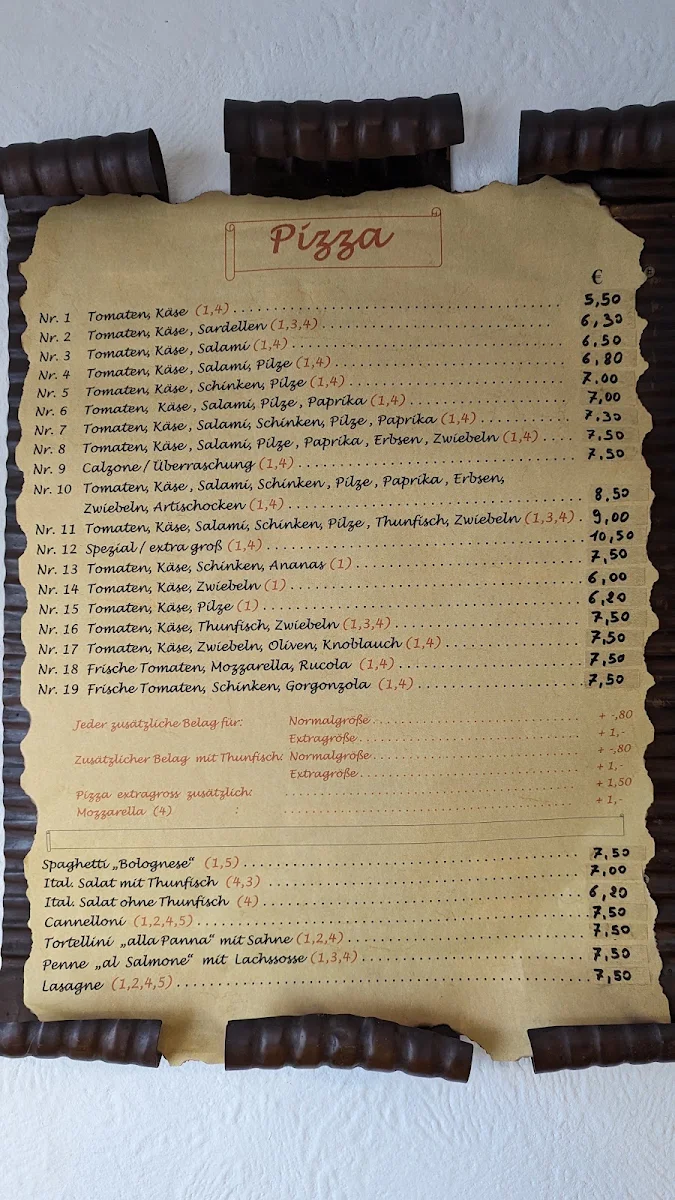 Pizza
€
Nr. 1 Tomaten, Käse (1,4) 5,50
Nr. 2 Tomaten, Käse, Sardellen (1,3,4) 6,30
Nr. 3 Tomaten, Käse, Salami (1,4) 6,50
Nr. 4 Tomaten, Käse, Salami, Pilze (1,4) 6,80
Nr. 5 Tomaten, Käse, Schinken, Pilze (1,4) 7.00
Nr. 6 Tomaten, Käse, Salami, Pilze, Paprika (1,4) 7,00
Nr. 7 Tomaten, Käse, Salami, Schinken, Pilze, Paprika (1,4) 7.30
Nr. 8 Tomaten, Käse, Salami, Pilze, Paprika, Erbsen, Zwiebeln (1,4) 7,50
Nr. 9 Calzone / Überraschung (1,4) 7,50
Nr. 10 Tomaten, Käse, Salami, Schinken, Pilze, Paprika, Erbsen,
Zwiebeln, Artischocken (1,4) 8,50
Nr. 11 Tomaten, Käse, Salami, Schinken, Pilze, Thunfisch, Zwiebeln (1,3,4) 9,00
Nr. 12 Spezial / extra groß (1,4) 10,50
Nr. 13 Tomaten, Käse, Schinken, Ananas (1) 7,50
Nr. 14 Tomaten, Käse, Zwiebeln (1) 6,00
Nr. 15 Tomaten, Käse, Pilze (1) 6,20
Nr. 16 Tomaten, Käse, Thunfisch, Zwiebeln (1,3,4) 7,50
Nr. 17 Tomaten, Käse, Zwiebeln, Oliven, Knoblauch (1,4) 7,50
Nr. 18 Frische Tomaten, Mozzarella, Rucola (1,4) 7,50
Nr. 19 Frische Tomaten, Schinken, Gorgonzola (1,4) 7,50
Jeder zusätzliche Belag für: Normalgröße + -,80
Extragröße + 1,-
Zusätzlicher Belag mit Thunfisch: Normalgröße + -,80
Extragröße + 1,-
Pizza extragross zusätzlich: + 1,50
Mozzarella (4) : + 1,-
Spaghetti „Bolognese“ (1,5) 7,50
Ital. Salat mit Thunfisch (4,3) 7,00
Ital. Salat ohne Thunfisch (4) 6,20
Cannelloni (1,2,4,5) 7,50
Tortellini „alla Panna“ mit Sahne (1,2,4) 7,50
Penne „al Salmone“ mit Lachssosse (1,3,4) 7,50
Lasagne (1,2,4,5) 7,50